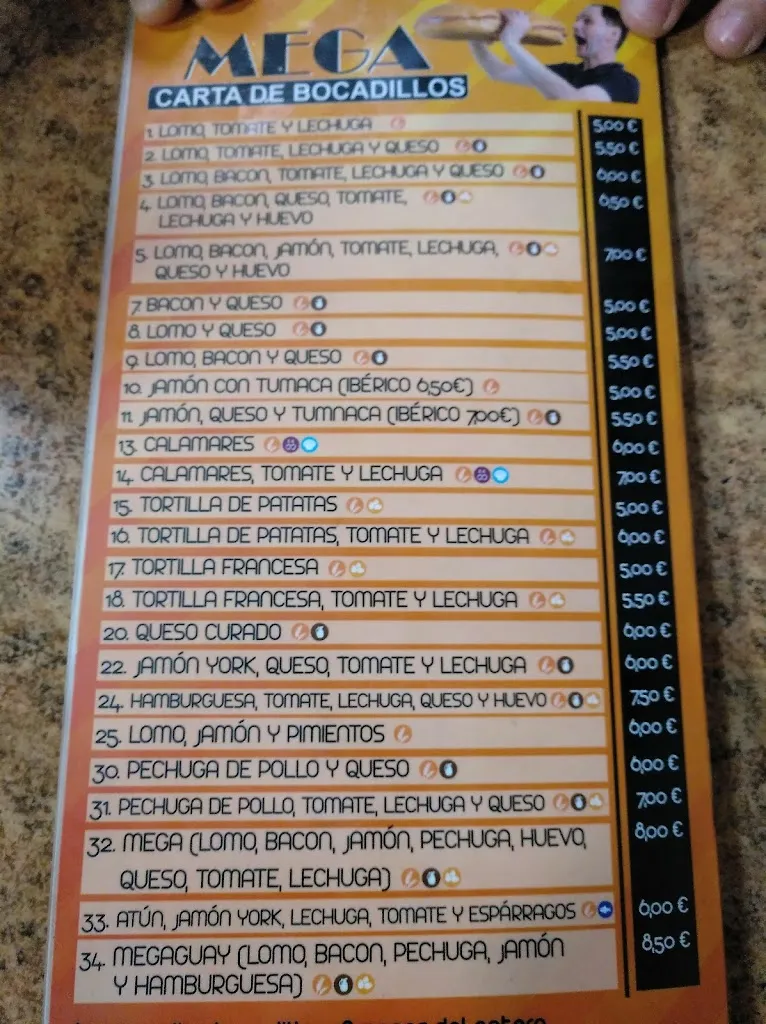 MEGA
CARTA DE BOCADILLOS
1. LOMO, TOMATE Y LECHUGA 5,00 €
2. LOMO, TOMATE, LECHUGA Y QUESO 5,50 €
3. LOMO, BACON, TOMATE, LECHUGA Y QUESO 6,00 €
4. LOMO, BACON, QUESO, TOMATE, 6,50 €
LECHUGA Y HUEVO
5. LOMO, BACON, JAMÓN, TOMATE, LECHUGA, 7,00 €
QUESO Y HUEVO
7. BACON Y QUESO 5,00 €
8. LOMO Y QUESO 5,00 €
9. LOMO, BACON Y QUESO 5,50 €
10. JAMÓN CON TUMACA (IBÉRICO 6,50€) 5,00 €
11. JAMÓN, QUESO Y TUMNACA (IBÉRICO 7,00€) 5,50 €
13. CALAMARES 6,00 €
14. CALAMARES, TOMATE Y LECHUGA 7,00 €
15. TORTILLA DE PATATAS 5,00 €
16. TORTILLA DE PATATAS, TOMATE Y LECHUGA 6,00 €
17. TORTILLA FRANCESA 5,00 €
18. TORTILLA FRANCESA, TOMATE Y LECHUGA 5,50 €
20. QUESO CURADO 6,00 €
22. JAMÓN YORK, QUESO, TOMATE Y LECHUGA 6,00 €
24. HAMBURGUESA, TOMATE, LECHUGA, QUESO Y HUEVO 7,50 €
25. LOMO, JAMÓN Y PIMIENTOS 6,00 €
30. PECHUGA DE POLLO Y QUESO 6,00 €
31. PECHUGA DE POLLO, TOMATE, LECHUGA Y QUESO 7,00 €
32. MEGA (LOMO, BACON, JAMÓN, PECHUGA, HUEVO, 8,00 €
QUESO, TOMATE, LECHUGA)
33. ATÚN, JAMÓN YORK, LECHUGA, TOMATE Y ESPÁRRAGOS 6,00 €
34. MEGAGUAY (LOMO, BACON, PECHUGA, JAMÓN 8,50 €
Y HAMBURGUESA)